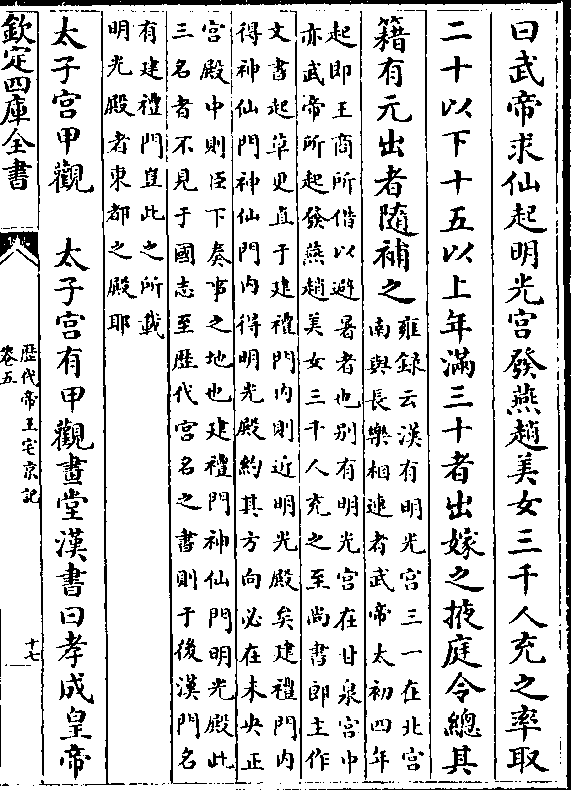 曰武帝求仙起明光宫發燕趙美女三千人充之率取
二十以下十五以上年滿三十者出嫁之掖庭令總其
籍有元出者隨補之
雍録云漢有明光宫三一在北宫
南與長樂相連者武帝太初四年
起即王商所偕以避暑者也别有明光宫在甘泉宫中
亦武帝所起發燕趙美女三千人充之至尚書郎主作
文書起草更直于建禮門内則近明光殿矣建禮門内
得神仙門神仙門内得明光殿約其方向必在未央正
宫殿中則臣下奏事之地也建禮門神仙門明光殿此
三名者不見于國志至歴代宫名之書則于後漢門名
有建禮門豈此之所載
明光殿者東都之殿耶
太子宫甲觀 太子宫有甲觀畫堂漢書曰孝成皇帝
欽定四庫全書
歴代帝王宅京記
卷五
十七